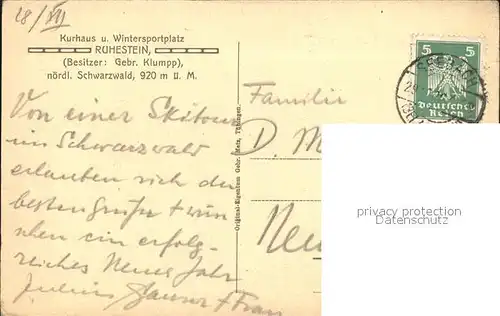 28/XII
Kurhaus u. Wintersportplatz
RUHESTEIN,
(Besitzer: Gebr. Klumpp),
nördl. Schwarzwald, 920 m ü. M.
Von einer Skitour
im Schwarzwald
erlauben sich die
besten Grüße + wün-
schen ein erfolg-
reiches Neues Jahr
Julius + Frau
Original-Eigentum Gebr. Metz, Tübingen.
5 5
Deutsches
Reich
Familie
D. M
Neu
privacy protection
Datenschutz